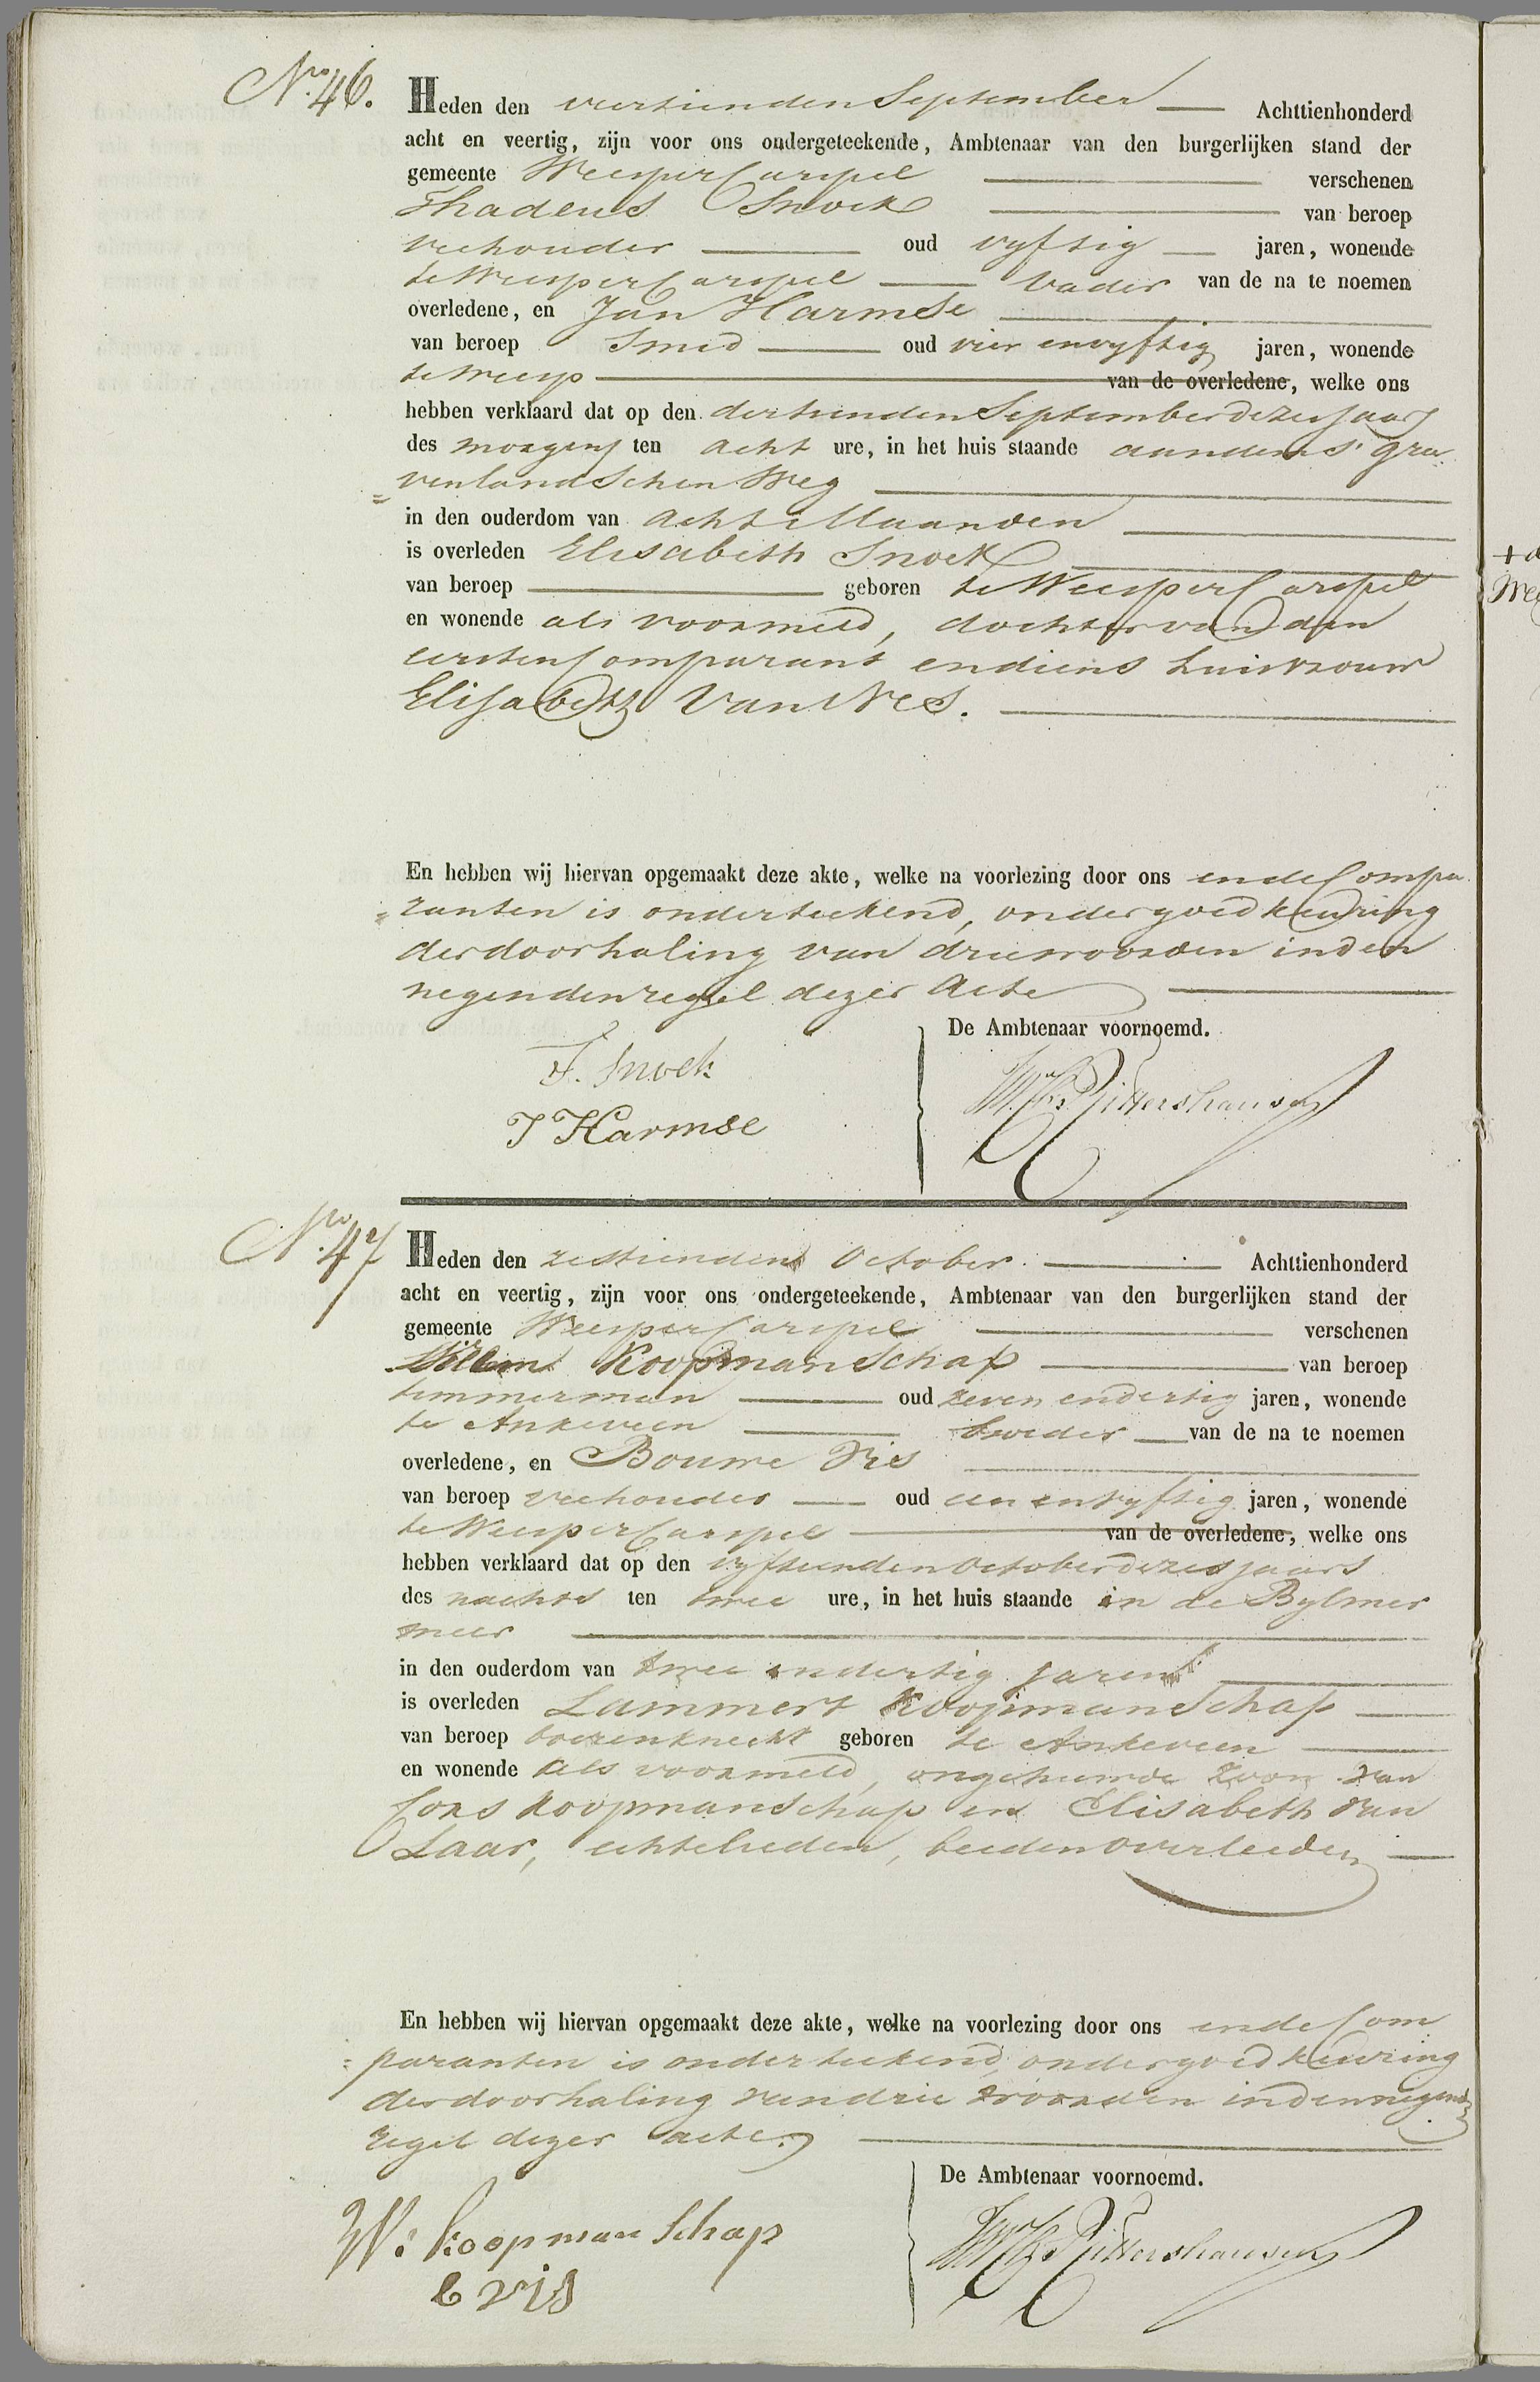 Nro. 46. Heden den viertienden September Achttienhonderd
acht en veertig, zijn voor ons ondergeteekende, Ambtenaar van den burgerlijken stand der
gemeente Weesper Carspel verschenen
Thadeus Snoek van beroep
veehouder oud vyftig jaren, wonende
te Weesper Carspel Vader van de na te noemen
overledene, en Jan Harmse
van beroep Smid oud vier en vyftig jaren, wonende
te Weesp van de overledene, welke ons
hebben verklaard dat op den dertienden September dezes jaars
des morgens ten acht ure, in het huis staande aan den s' Gra
=venlandschen Weg
in den ouderdom van acht Maanden
is overleden Elisabeth Snoek
van beroep geboren te Weesper Carspel
en wonende als voormeld, dochter van den
eersten Comparant en diens huisvrouw
Elisabeth Van Nes.
En hebben wij hiervan opgemaakt deze akte, welke na voorlezing door ons en de Compa
=ranten is onderteekend, onder goedkeuring
der doorhaling van drie woorden in den
negenden regel dezer Acte
De Ambtenaar voornoemd.
T. Snoek
J Harmse
Rittershausen
Nro. 47 Heden den zestienden October. Achttienhonderd
acht en veertig, zijn voor ons ondergeteekende, Ambtenaar van den burgerlijken stand der
gemeente Weesper Carspel verschenen
Willem Koopmanschap van beroep
timmerman oud zeven en dertig jaren, wonende
te Ankeveen broeder van de na te noemen
overledene, en Bouwe Vis
van beroep veehouder oud een en vyftig jaren, wonende
te Weesper Carspel van de overledene, welke ons
hebben verklaard dat op den vyftienden October dezes jaars
des nachts ten twee ure, in het huis staande in de Bylmer
meer
in den ouderdom van twee en dertig jaren
is overleden Lammert Koopmanschap
van beroep boerenknecht geboren te Ankeveen
en wonende als voormeld, ongehuwde zoon van
Cors Koopmanschap en Elisabeth van
Laar, echtelieden, beiden overleeden
En hebben wij hiervan opgemaakt deze akte, welke na voorlezing door ons en de Com
=paranten is onderteekend, onder goedkeuring
der doorhaling van drie woorden in den negenden
regel dezer acte.
De Ambtenaar voornoemd.
W: Koopman Schap
B vis
Rittershausen